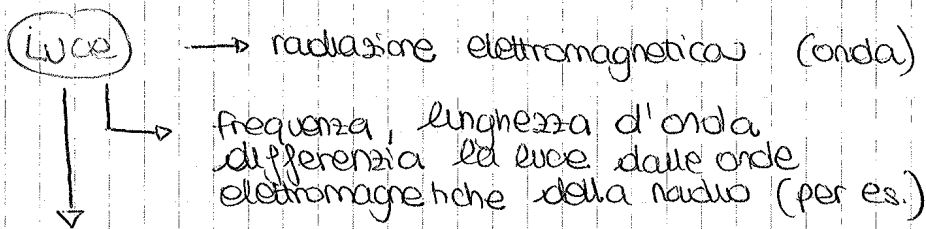 Luce → radiazione elettromagnetica (onda)
frequenza, lunghezza d'onda
differenzia la luce dalle onde
elettromagnetiche della radio (per es.)